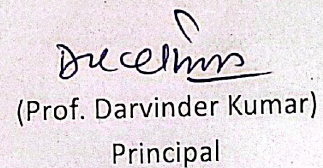 (Prof. Darvinder Kumar)
Principal